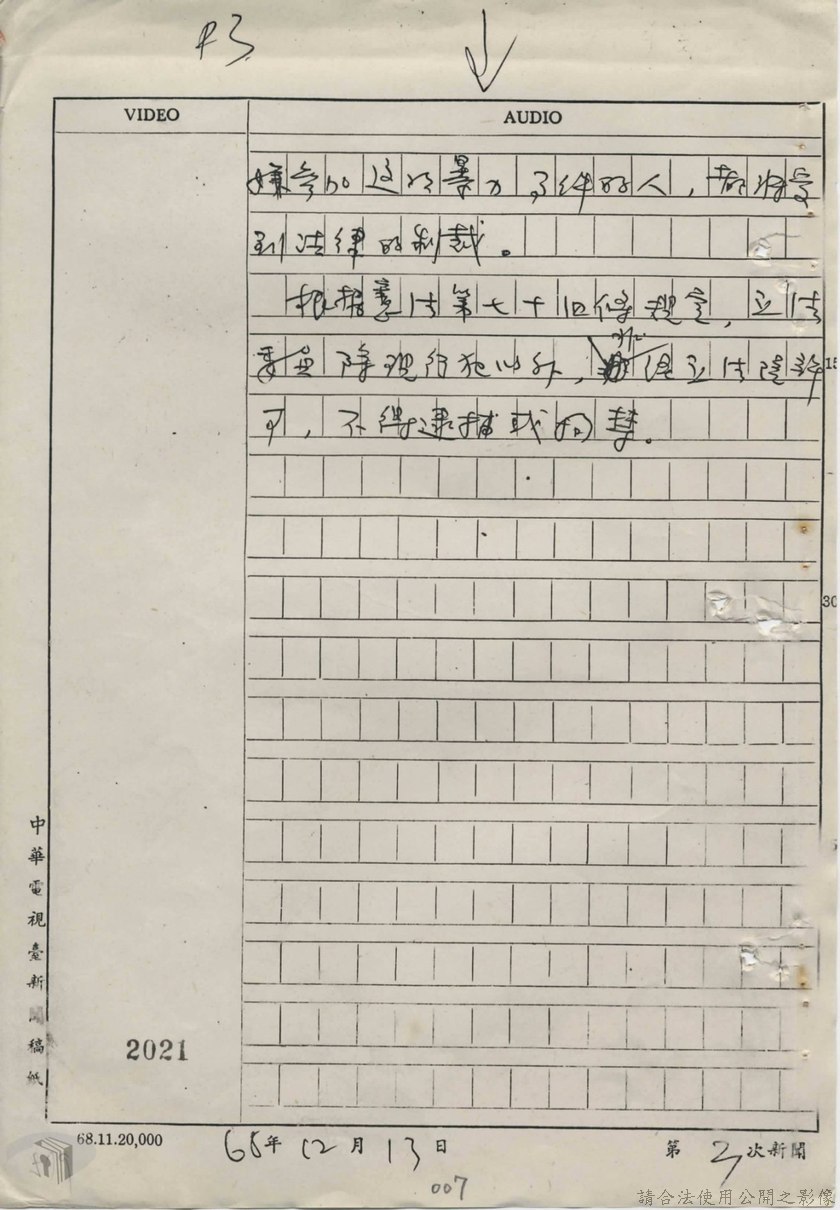 P3
VIDEO
AUDIO
嫌參加這項暴力事件的人，都將受
到法律的制裁。
根據憲法第七十四條規定，立法
委員除現行犯以外，非經立法院許
可，不得逮捕或拘禁。
15
30
中華電視臺新聞稿紙
2021
68.11.20,000
68年12月13日
第 次新聞
007
請合法使用公開之影像